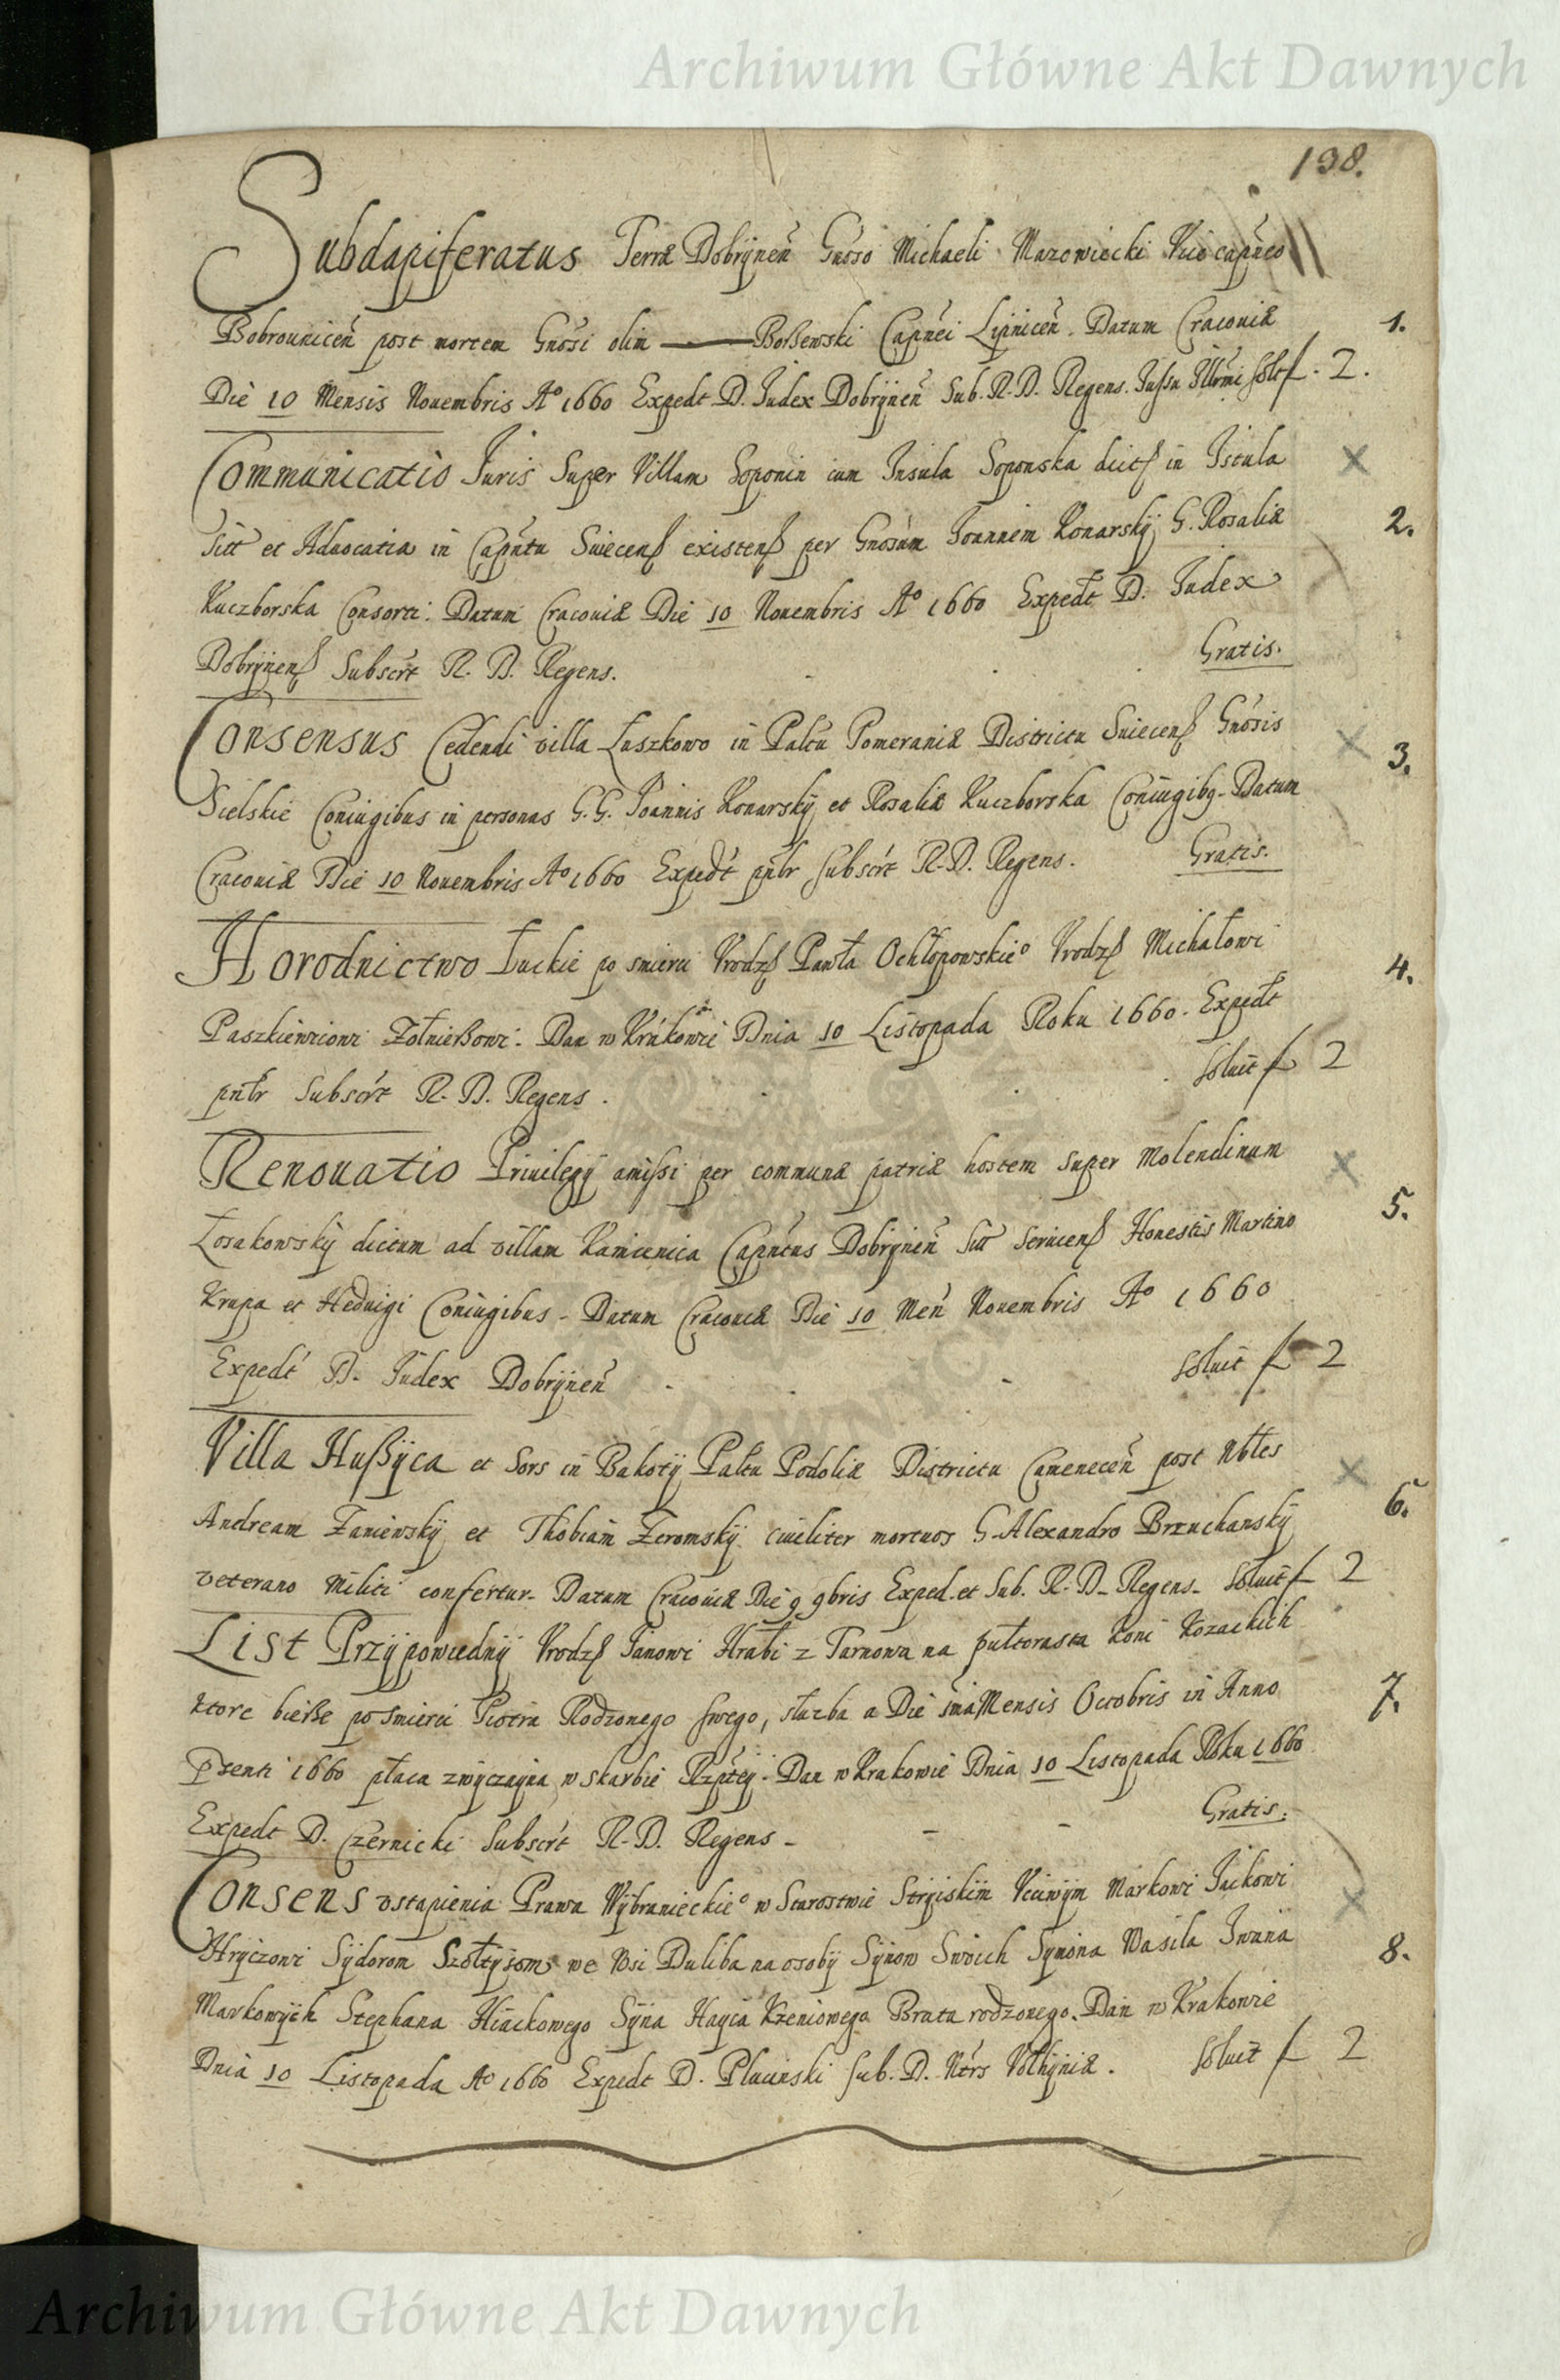 Archiwum Główne Akt Dawnych
138.
Subdapiferatus Terræ Dobrÿneñ Gnoso Michaeli Mazowiecki Vicecapneo
Bobrouniceñ post mortem Gnosi olim —— Borßewski Capnei Lipniceñ. Datum Cracouiæ 1.
Die 10 Mensis Nouembris Aº 1660 Expedt D. Judex Dobrÿneñ Sub. R. D. Regens. Jussu Illrmi solt f. 2.
Communicatio Juris Super Villam Soponin cum Insula Soponska dict in Istula
sitt et Aduocatia in Capntu Suecens existens per Gnosum Joannem Konarskÿ G. Rosaliæ 2.
Kuczborska Consorti: Datum Cracouiæ Die 10 Nouembris Aº 1660 Expedt D. Judex
Dobrÿnens Subscrt R. D. Regens. Gratis.
Consensus Cedendi villa Luszkowo in Paltu Pomeraniæ Districtu Suiecens Gnosis 3.
Sielskie Coniugibus in personas G. G. Joannis Konarskÿ et Rosaliæ Kuczborska Coniugibg. Datum
Cracouiæ Die 10 Nouembris Aº 1660 Expedt pntr Subscrt R. D. Regens. Gratis.
Horodnictwo Łuckie po smierci Vrodz Pawła Ochłopowskieº Vrodz Michałowi 4.
Paszkiewiczowi Zołnierßowi. Dan w Krakowie Dnia 10 Listopada Roku 1660. Expedt
pntr Subscrt R. D. Regens. soluit f 2
Renouatio Priuilegÿ amissi per communæ patriæ hostem super Molendinum
Łosakowskÿ dictum ad villam Kamienica Capntus Dobrÿneñ sitt seruiens Honestis Martino 5.
Krupa et Heduigi Coniugibus. Datum Cracouiæ Die 10 Meñ Nouembris Aº 1660
Expedt D. Judex Dobrÿneñ soluit f 2
Villa Hußÿca et Sors in Bakotÿ Paltu Podoliæ Districtu Cameneceñ post Nbles
Andream Zaniewskÿ et Thobiam Zeromskÿ ciuiliter mortuos G. Alexandro Brzuchanskÿ 6.
veterano Militi confertur. Datum Cracouiæ Die 9 9bris Exped. et Sub. R. D. Regens. Soluit f 2
List Przÿpowiednÿ Vrodz Janowi Hrabi z Tarnowa na pułtorasta Koni Kozackich
ktore bierße po smierci Piotra Rodzonego swego, służba a Die ima Mensis Octobris in Anno 7.
pzenti 1660 płaca zwÿczaÿna w skarbie Rzptey. Dan w Krakowie Dnia 10 Listopada Roku 1660
Expedt D. Czernicki Subscrt R. D. Regens. Gratis.
Consens vstapienia Prawa Wÿbranieckieº w Starostwie Strÿiskim Vciwÿm Markowi Jackowi
Hrÿczowi Sÿdorom Szołtÿsom we Wsi Duliba na osobÿ Sÿnow Swoich Symona Wasila Iwana 8.
Markowÿch Stephana Hiackowego Sÿna Brata rodzonego. Dan w Krakowie
Dnia 10 Listopada Aº 1660 Expedt D. Plucinski sub. D. Ntrs Volhÿniæ. soluit f 2
Archiwum Główne Akt Dawnych